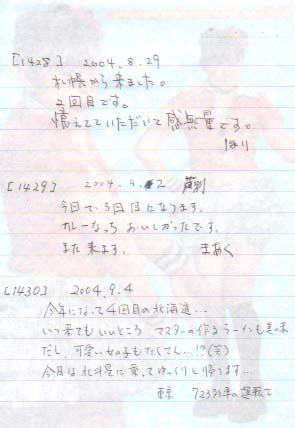 [1428] 2004.8.29
札幌から来ました。
2回目です。
憶えてていただいて感無量です。
ほり
[1429] 2004.9.2 芦別
今日で3回目になります。
カレーなっち おいしかったです。
また来ます。 まあく
[1430] 2004.9.4
今年になって4回目の北海道...
いつ来てもいいところ マスターの作るラーメンも美味
だし、可愛い女の子もたくさん...!?(笑)
今日は北斗星に乗ってゆっくりと帰ります...
東京 7233列車の運転士